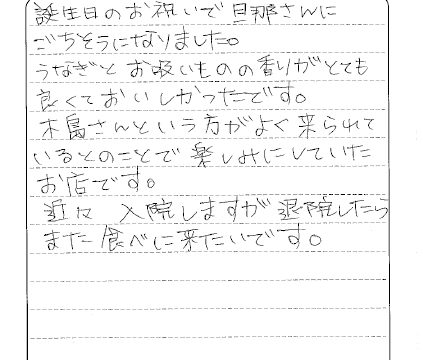 誕生日のお祝いで旦那さんに
ごちそうになりました。
うなぎとお吸いものの香りがとても
良くておいしかったです。
木島さんという方がよく来られて
いるとのことで楽しみにしていた
お店です。
近々 入院しますが退院したら
また食べに来たいです。